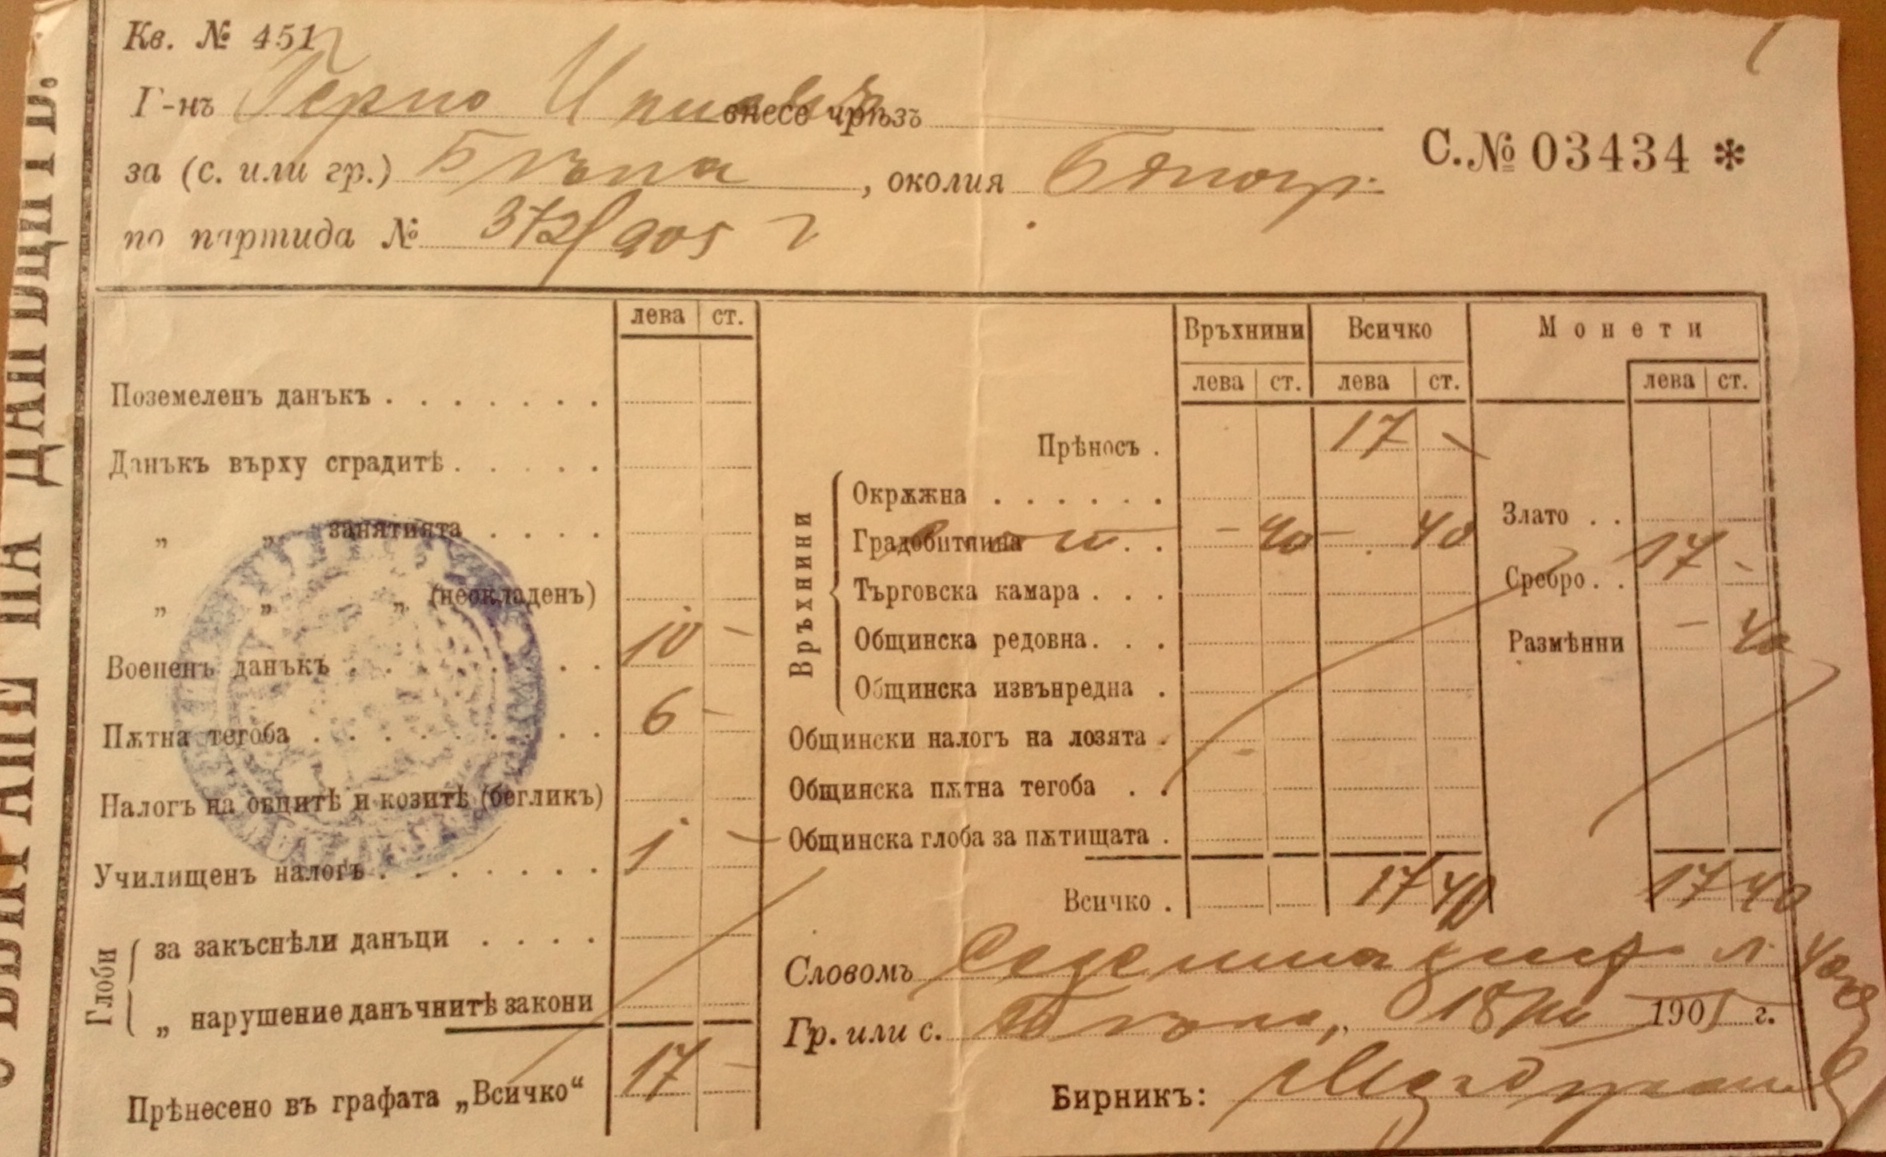 Кв. № 451
Г-нъ внесе чрѣзъ
С.№ 03434 *
за (с. или гр.) , околия
по партида № 372/905 г
лева ст.
Поземеленъ данъкъ
Данъкъ върху сградитѣ
„ „ занятията
„ „ „ (неокладенъ)
Воененъ данъкъ 10 -
Пѫтна тегоба 6 -
Налогъ на овцитѣ и козитѣ (бегликъ)
Училищенъ налогъ 1 -
Глоби
за закъснѣли данъци
„ нарушение данъчнитѣ закони
Прѣнесено въ графата „Всичко“ 17 -
Връхнини Всичко Монети
лева ст. лева ст. лева ст.
Прѣносъ 17 -
Връхнини
Окрѫжна
Градобитнина - 40 - 40
Търговска камара
Общинска редовна
Общинска извънредна
Общински налогъ на лозята
Общинска пѫтна тегоба
Общинска глоба за пѫтищата
Всичко 17 40
Злато
Сребро 17 -
Размѣнни - 40
17 40
Словомъ Седемнадесет л. 40
Гр. или с. 190 г.
Бирникъ:
СЪБИРАНЕ НА ДАНЪЦИТѢ.